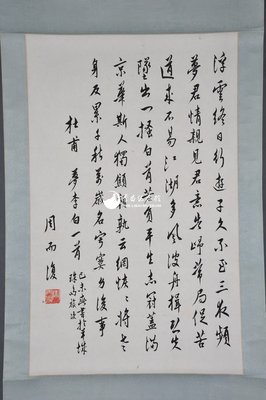 浮雲終日行遊子久不至三夜頻
夢君情親見君意告歸常局促苦
道來不易江湖多風波舟楫恐失
墜出門搔白首若負平生志冠蓋滿
京華斯人獨顦顇孰云網恢恢將老
身反累千秋萬歲名寂寞身後事
杜甫 夢李白一首
周而復